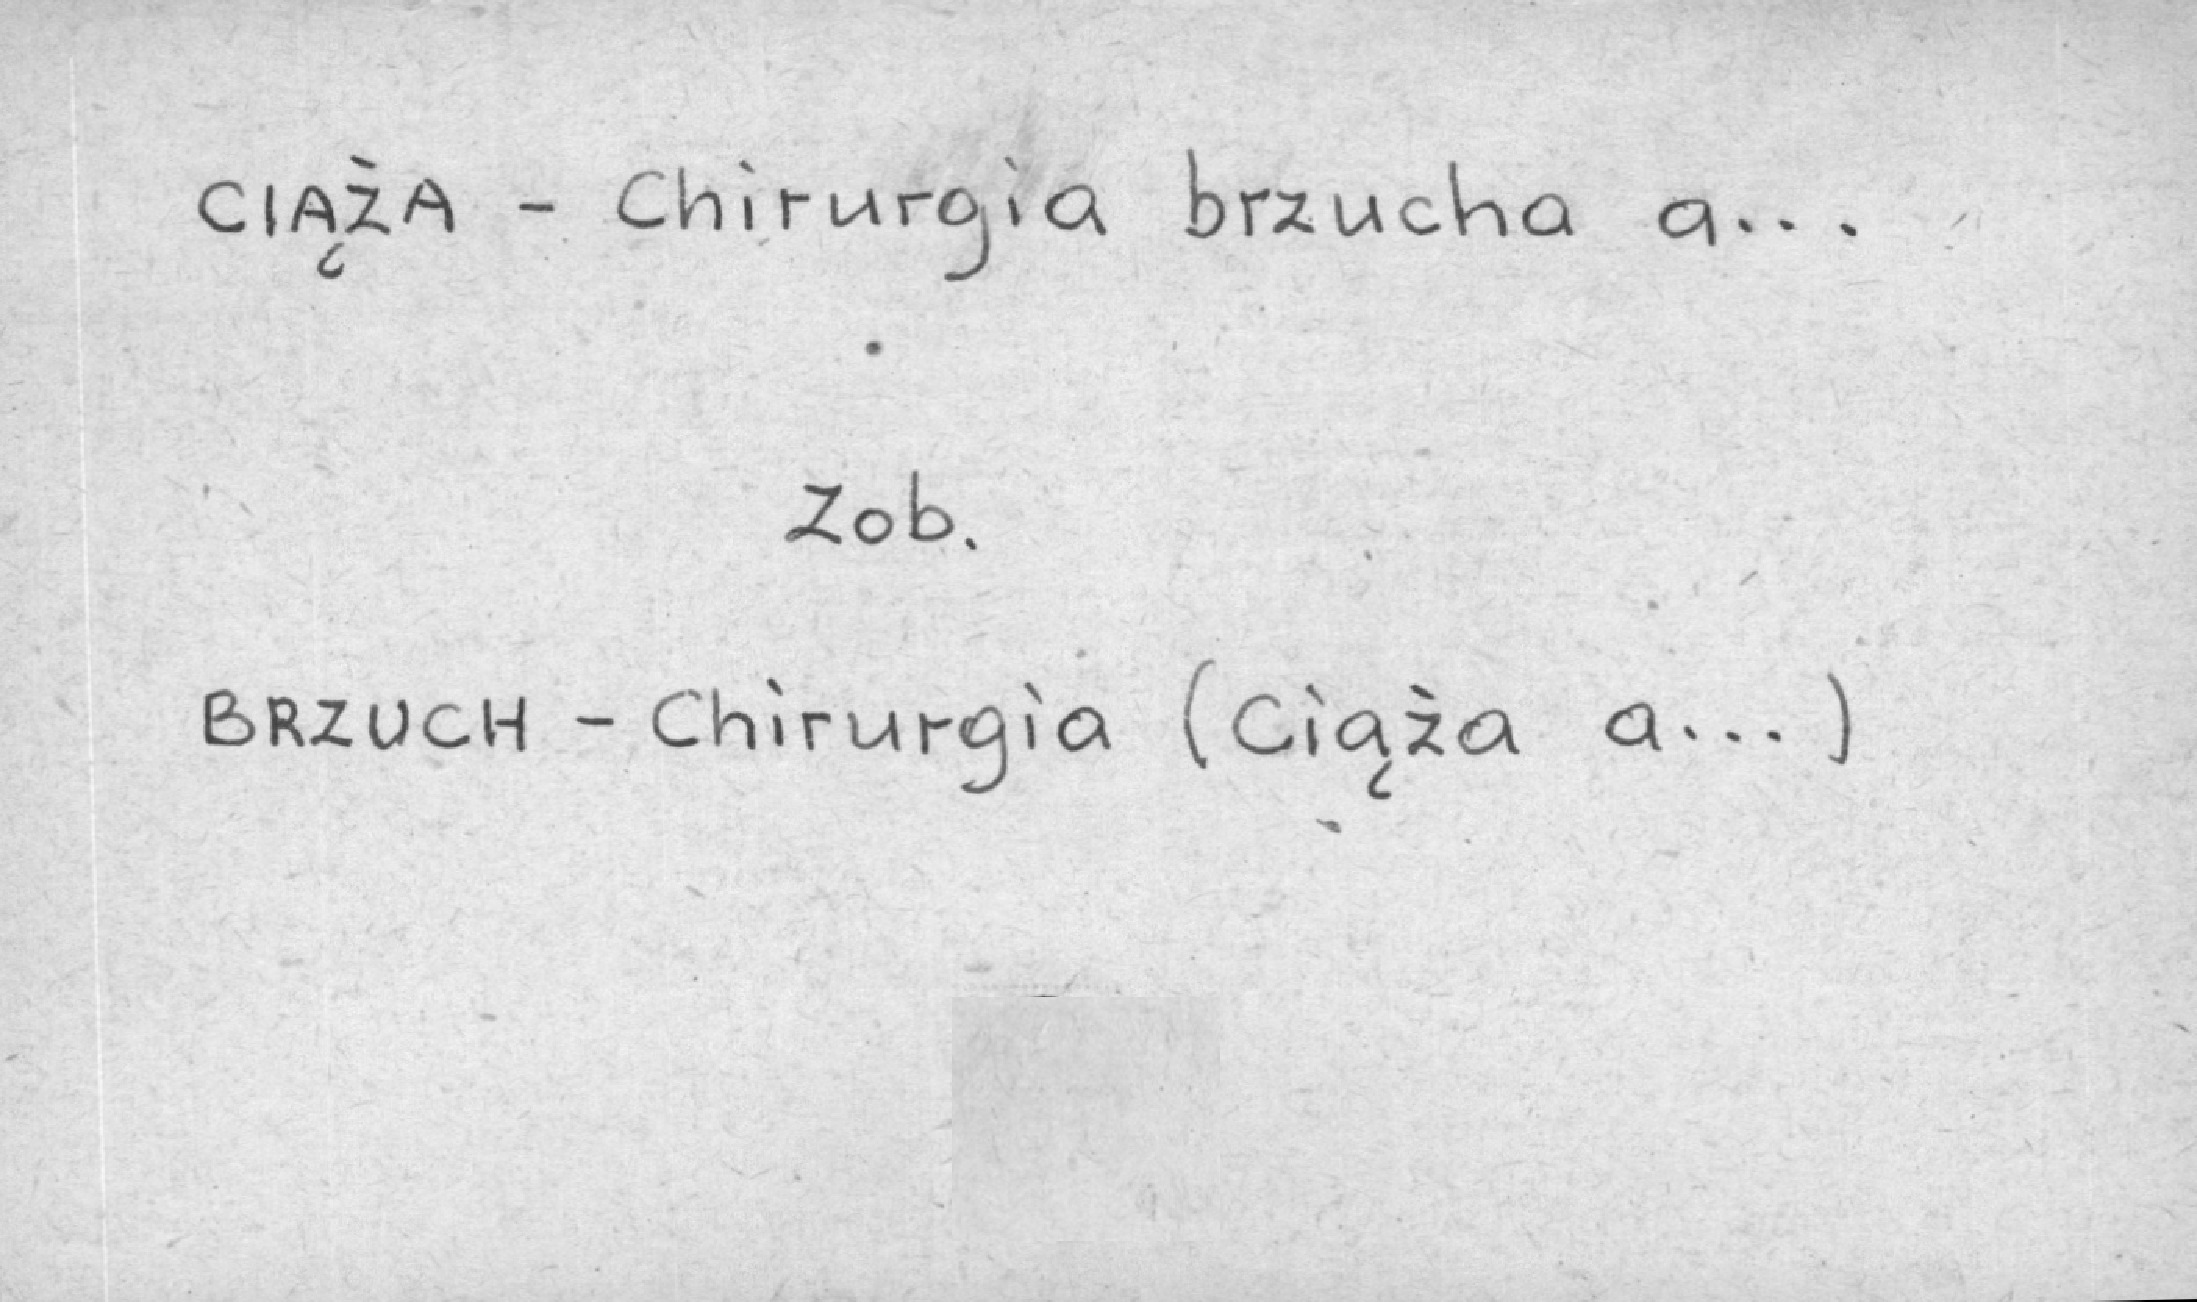 CIĄŻA - Chirurgia brzucha a...
Zob.
BRZUCH - Chirurgia (Ciąża a...)